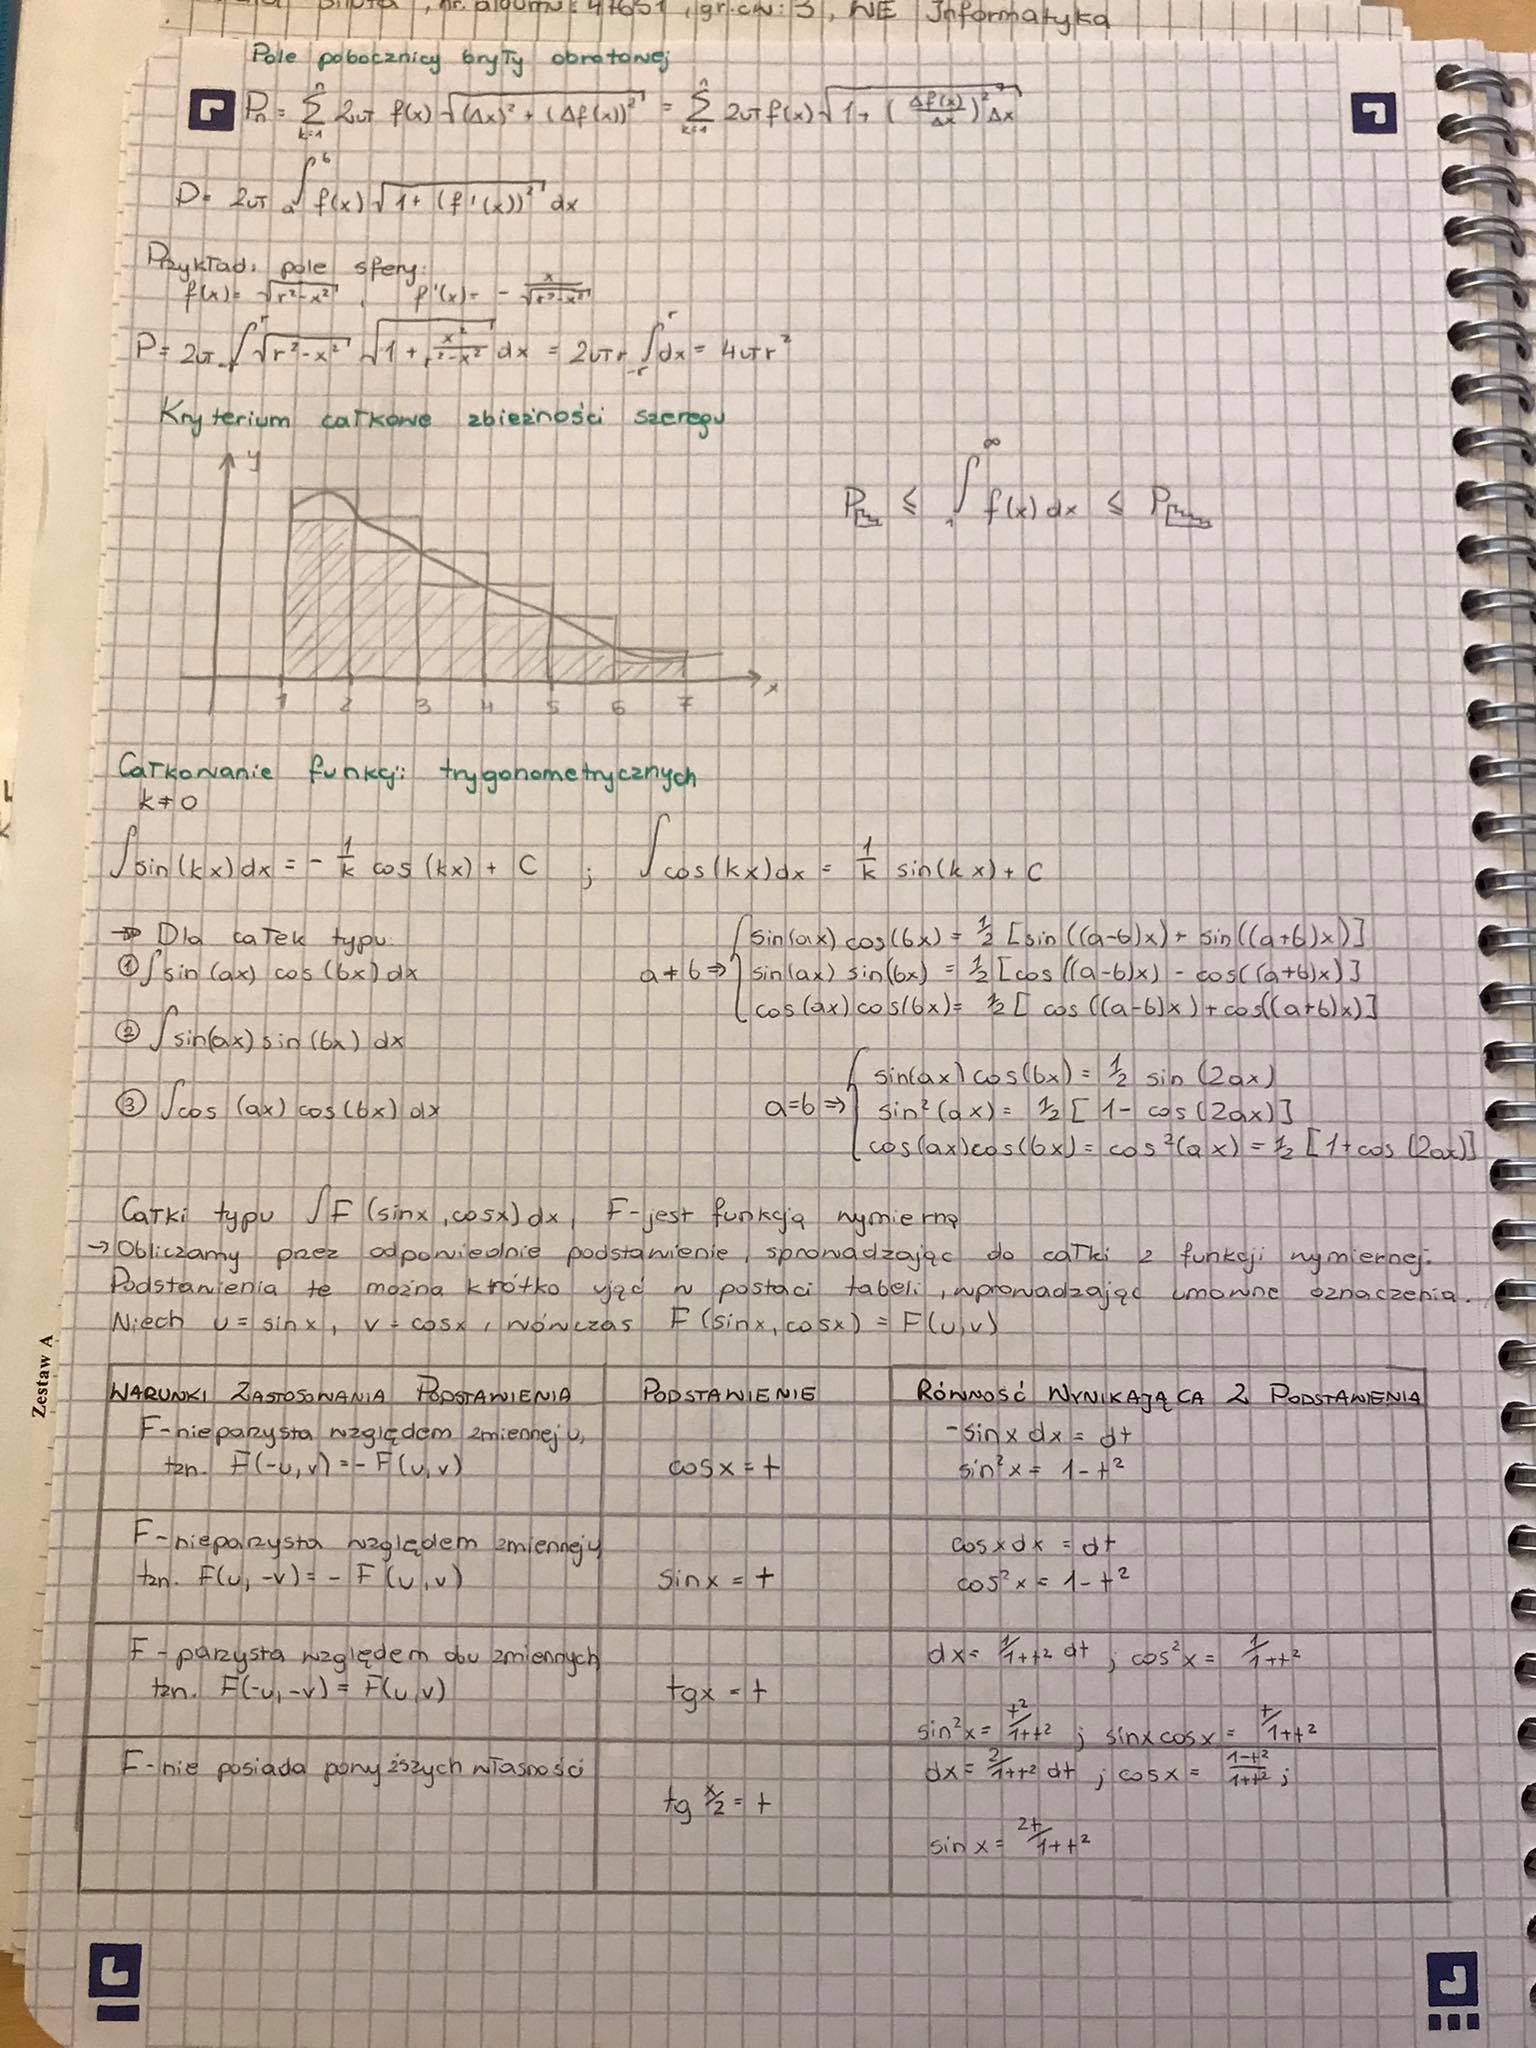 , nr. albumu: 47651, gr. ćw: 3, WE Informatyka
Pole pobocznicy bryły obrotowej
Pₙ = Σₖ₌₁ⁿ 2π f(x) √((Δx)² + (Δf(x))²) = Σₖ₌₁ⁿ 2π f(x) √(1 + (Δf(x)/Δx)²) Δx
P = 2π ∫ₐᵇ f(x) √(1 + (f'(x))²) dx
Przykład: pole sfery:
f(x) = √(r²-x²) , f'(x) = - x/√(r²-x²)
P = 2π ∫₋ᵣʳ √(r²-x²) √(1 + x²/(r²-x²)) dx = 2πr ∫₋ᵣʳ dx = 4πr²
Kryterium całkowe zbieżności szeregu
y
P ≤ ∫₁^∞ f(x) dx ≤ P
1 2 3 4 5 6 7 x
Całkowanie funkcji trygonometrycznych
k ≠ 0
∫ sin(kx) dx = - 1/k cos(kx) + C ; ∫ cos(kx) dx = 1/k sin(kx) + C
→ Dla całek typu:
① ∫ sin(ax) cos(bx) dx
② ∫ sin(ax) sin(bx) dx
③ ∫ cos(ax) cos(bx) dx
a ≠ b ⇒ { sin(ax) cos(bx) = 1/2 [sin((a-b)x) + sin((a+b)x)]
sin(ax) sin(bx) = 1/2 [cos((a-b)x) - cos((a+b)x)]
cos(ax) cos(bx) = 1/2 [cos((a-b)x) + cos((a+b)x)]
a = b ⇒ { sin(ax) cos(bx) = 1/2 sin(2ax)
sin²(ax) = 1/2 [1 - cos(2ax)]
cos(ax) cos(bx) = cos²(ax) = 1/2 [1 + cos(2ax)]
Całki typu ∫ F(sinx, cosx) dx, F - jest funkcją wymierną
→ Obliczamy przez odpowiednie podstawienie, sprowadzając do całki z funkcji wymiernej.
Podstawienia te można krótko ująć w postaci tabeli, wprowadzając umowne oznaczenia.
Niech u = sinx, v = cosx, wówczas F(sinx, cosx) = F(u,v)
WARUNKI ZASTOSOWANIA PODSTAWIENIA
PODSTAWIENIE
RÓWNOŚĆ WYNIKAJĄCA Z PODSTAWIENIA
F - nieparzysta względem zmiennej u,
tzn. F(-u, v) = - F(u, v)
cosx = t
-sinx dx = dt
sin²x = 1 - t²
F - nieparzysta względem zmiennej v
tzn. F(u, -v) = - F(u, v)
sinx = t
cosx dx = dt
cos²x = 1 - t²
F - parzysta względem obu zmiennych
tzn. F(-u, -v) = F(u, v)
tgx = t
dx = 1/1+t² dt ; cos²x = 1/1+t²
sin²x = t²/1+t² ; sinx cosx = t/1+t²
F - nie posiada powyższych własności
tg x/2 = t
dx = 2/1+t² dt ; cosx = 1-t²/1+t² ;
sinx = 2t/1+t²
Zestaw A